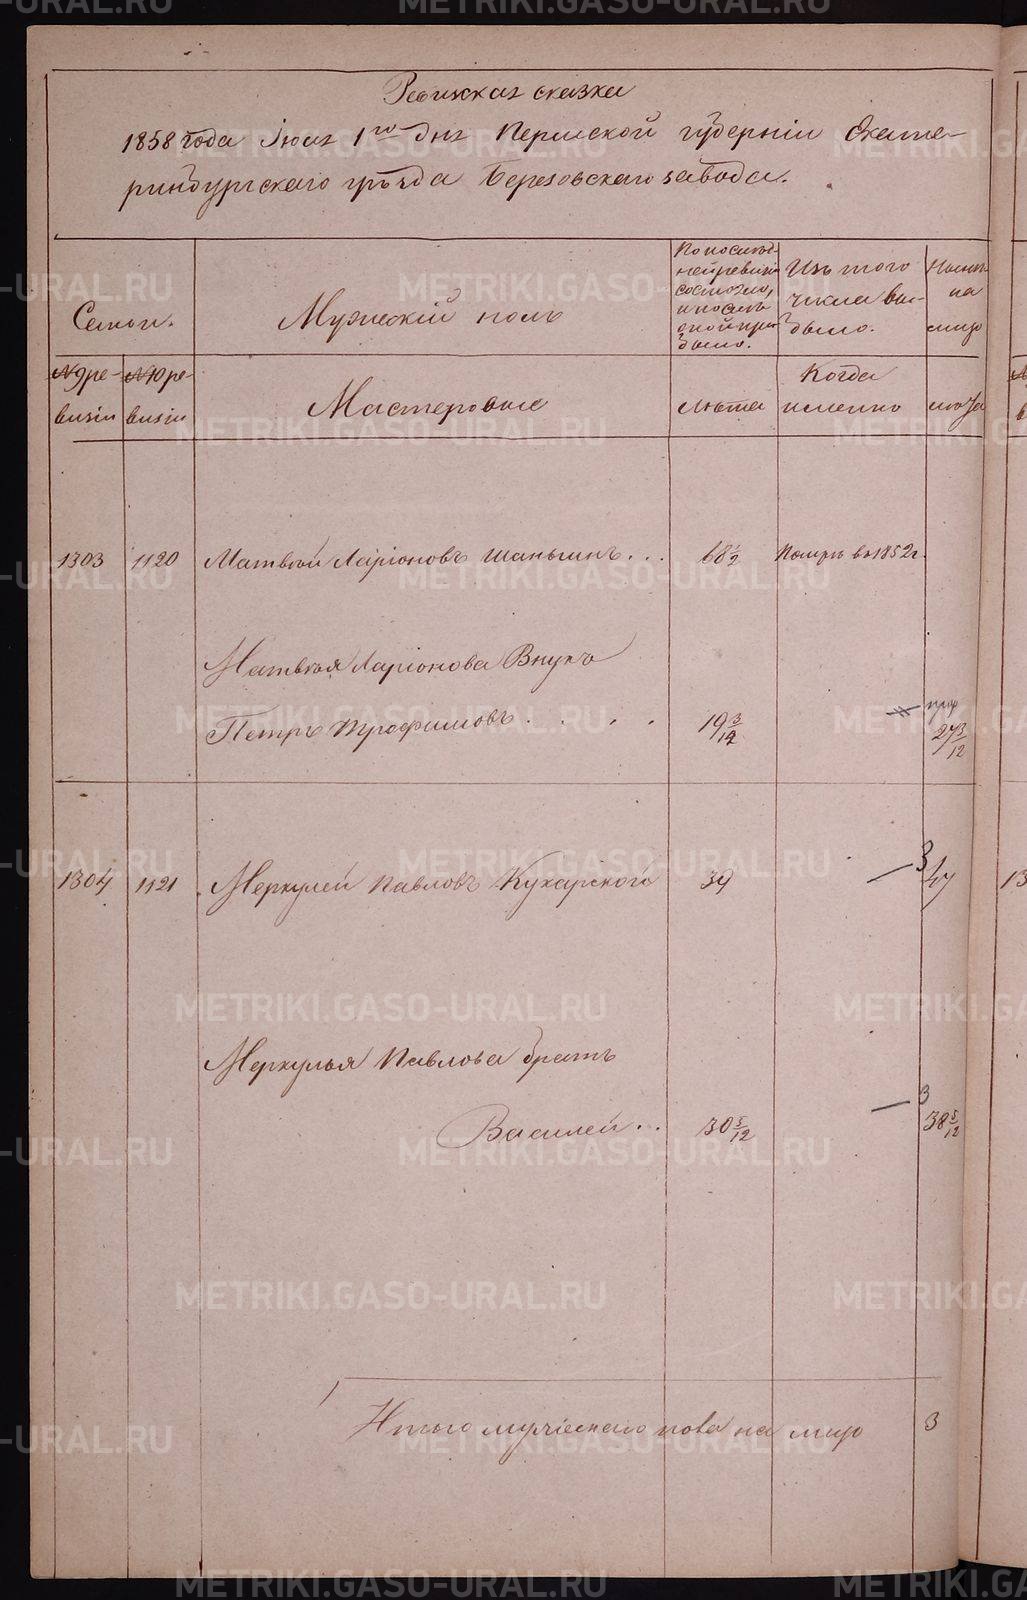 Ревизская сказка
1858 года Июня 1го дня Пермской губернiи Екате-
ринбургскаго уѣзда Березовскаго завода.
Семьи.
Мужескiй полъ
По послѣд-
ней ревизiи
состояло,
и послѣ
оной при-
было.
Изъ того
числа вы-
было.
Нынѣ
на
лицо
№ 9 ре-
визiи
№ 10 ре-
визiи
Мастеровые
Лѣта
Когда
именно
лѣта
1303 1120 Матвѣй Ларiоновъ Шаньгинъ . . . 68 1/2 Померъ въ 1852 г.
Матвѣя Ларiонова Внукъ
Петръ Трофимовъ . . . . 19 3/12 27 3/12
1304 1121 Меркулей Павловъ Кухарскаго 39 3 47
Меркулья Павлова братъ
Василей . . . 30 5/12 3 38 5/12
Итого мужескаго пола на лицо 3
METRIKI.GASO-URAL.RU